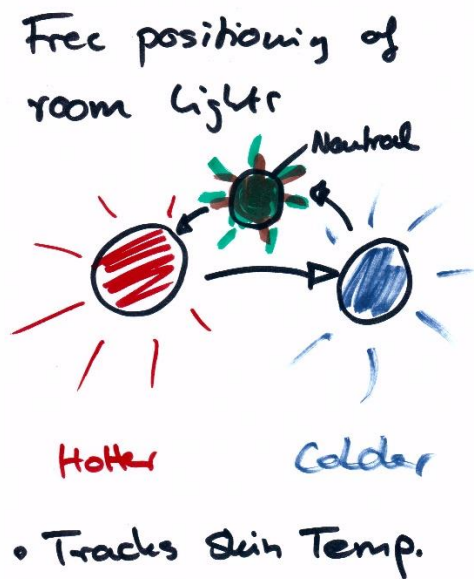 Free positioning of
room lights
Neutral
Hotter
Colder
• Tracks Skin Temp.